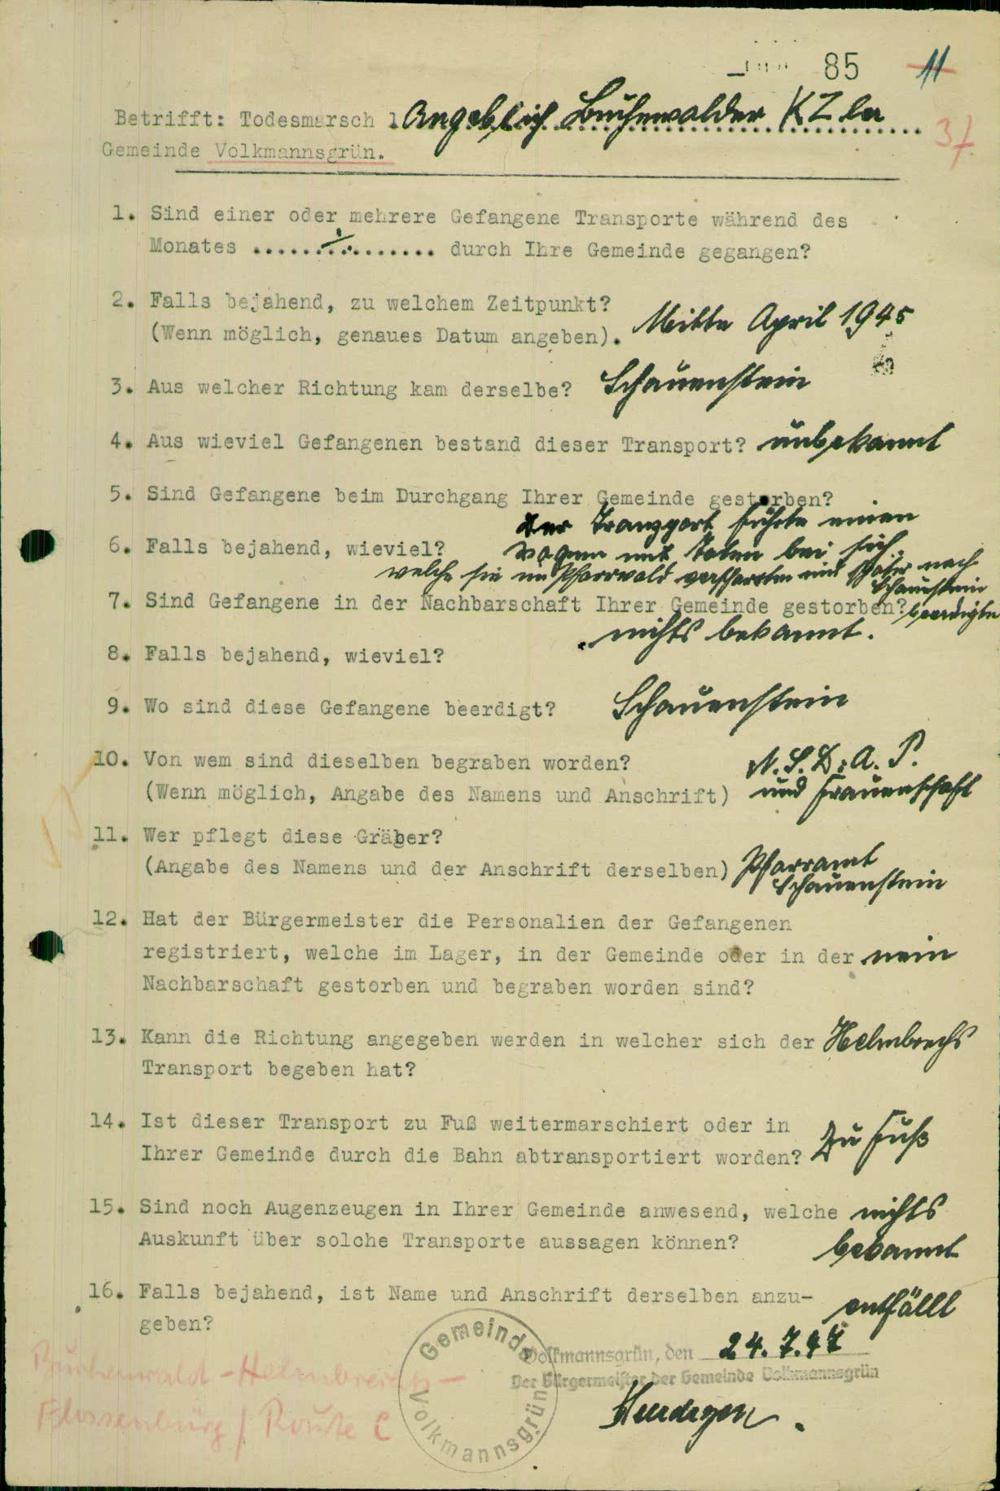 85 11
Betrifft: Todesmarsch Angeblich Buchenwalder KZler
37.
Gemeinde Volkmannsgrün.
1. Sind einer oder mehrere Gefangene Transporte während des
Monates ......÷....... durch Ihre Gemeinde gegangen?
2. Falls bejahend, zu welchem Zeitpunkt?
(Wenn möglich, genaues Datum angeben). Mitte April 1945
3. Aus welcher Richtung kam derselbe? Schauenstein
4. Aus wieviel Gefangenen bestand dieser Transport? unbekannt
5. Sind Gefangene beim Durchgang Ihrer Gemeinde gestorben?
Der Transport führte einen
6. Falls bejahend, wieviel? Wagen mit Toten bei sich,
welche sie im Pfarrwald verscharrten und später nach
Schauenstein
7. Sind Gefangene in der Nachbarschaft Ihrer Gemeinde gestorben? beerdigte
nichts bekannt.
8. Falls bejahend, wieviel?
9. Wo sind diese Gefangene beerdigt? Schauenstein
10. Von wem sind dieselben begraben worden? N.S.D.A.P.
(Wenn möglich, Angabe des Namens und Anschrift) und Frauenschaft
11. Wer pflegt diese Gräber?
(Angabe des Namens und der Anschrift derselben) Pfarramt
Schauenstein
12. Hat der Bürgermeister die Personalien der Gefangenen
registriert, welche im Lager, in der Gemeinde oder in der nein
Nachbarschaft gestorben und begraben worden sind?
13. Kann die Richtung angegeben werden in welcher sich der Helmbrechs
Transport begeben hat?
14. Ist dieser Transport zu Fuß weitermarschiert oder in
Ihrer Gemeinde durch die Bahn abtransportiert worden? Zu Fuß
15. Sind noch Augenzeugen in Ihrer Gemeinde anwesend, welche nichts
Auskunft über solche Transporte aussagen können? bekannt
16. Falls bejahend, ist Name und Anschrift derselben anzu- entfällt
geben?
Gemeinde Volkmannsgrün
Volkmannsgrün, den 24.7.47
Der Bürgermeister der Gemeinde Volkmannsgrün
Buchenwald - Helmbrechts -
Flossenbürg / Route C